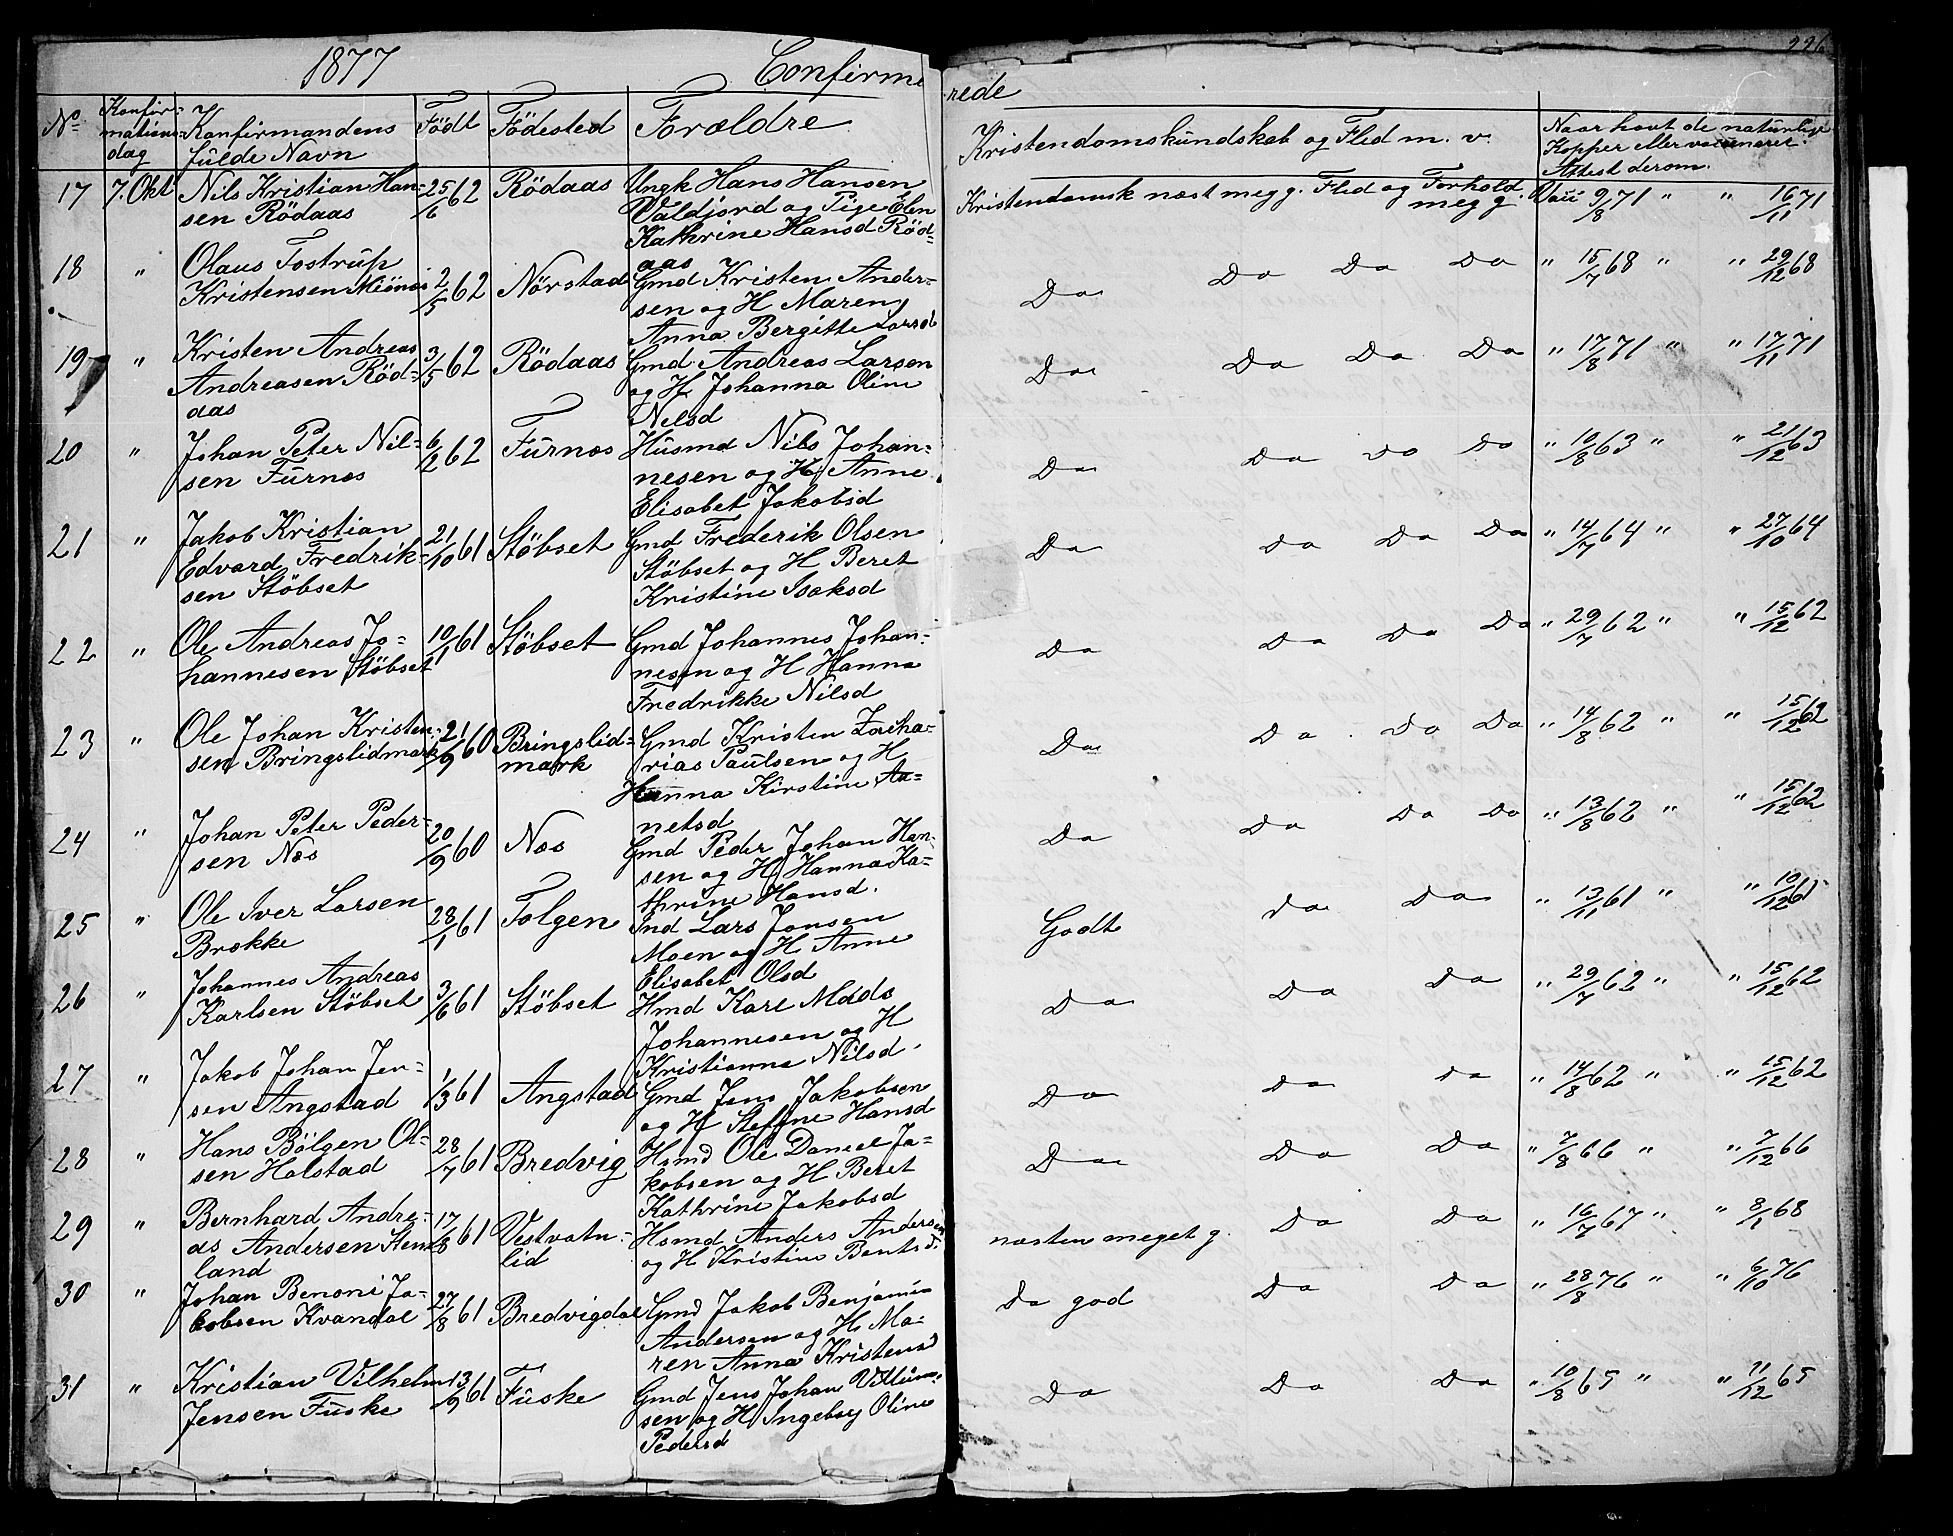 1877 Confirmerede
226
No Konfirmationsdag Konfirmandens fulde Navn Födt Födested Forældre Kristendomskundskab og Flid m. v. Naar havt de naturlige Kopper eller vaccineret. Attest derom.
17 7. Okt Nils Kristian Han- 25/6 62 Rödaas Ungk Hans Hansen Kristendomsk næst meg g. Flid og Forhold meg g. Vac 9/8 71 " " 16/11 71
sen Rödaas Valdjord og Pige Elen
Kathrine Hansd Röd-
aas
18 " Olaus Tostrup 2/5 62 Nörstad Gmd Kristen Ander- Do Do Do Do " 15/7 68 " " 29/12 68
Kristensen sen og H Maren
Anna Bergitte Larsd
19 " Kristen Andreas 3/5 62 Rödaas Gmd Andreas Larsen Do Do Do Do " 17/8 71 " " 17/11 71
Andreasen Röd- og H Johanna Oline
aas Nelsd
20 " Johan Peter Nil- 6/2 62 Furnes Husmd Nils Johan- Do Do Do Do " 10/8 63 " " 21/12 63
sen Furnes nesen og H Anne
Elisabet Jakobsd
21 " Jakob Kristian 21/10 61 Stöbset Gmd Frederik Olsen Do Do Do Do " 14/7 64 " " 27/10 64
Edvard Fredrik- Stöbset og H Beret
sen Stöbset Kristine Isaksd
22 " Ole Andreas Jo- 10/1 61 Stöbset Gmd Johannes Johan- Do Do Do Do " 29/7 62 " " 15/12 62
hannesen Stöbset nesen og H Hanna
Fredrikke Nilsd
23 " Ole Johan Kristen- 21/9 60 Bringslid- Gmd Kristen Zacha- Do Do Do Do " 14/8 62 " " 15/12 62
sen Bringslidmark mark rias Paulsen og H
Hanna Kirstine Aa-
netsd
24 " Johan Peter Peder- 20/9 60 Næs Gmd Peder Johan Han- Do Do Do Do " 13/8 62 " " 15/12 62
sen Næs sen og H Hanna Ka-
thrine Hansd.
25 " Ole Iver Larsen 28/1 61 Folgen Ind Lars Jonsen Godt do Do " 13/11 61 " " 10/12 61
Brække Moen og H Anne
Elisabet Olsd
26 " Johannes Andreas 3/6 61 Stöbset Hmd Karl Mads Do Do Do " 29/7 62 " " 15/12 62
Karlsen Stöbset Johannesen og H
Kristianna Nilsd.
27 " Jakob Johan Jen- 1/3 61 Angstad Gmd Jens Jakobsen Do Do Do " 14/8 62 " " 15/12 62
sen Angstad og H Steffine Hansd
28 " Hans Bölgen Ol- 28/7 61 Bredvig Hsmd Ole Daniel Ja- Do Do Do " 7/8 66 " " 7/12 66
sen Halstad kobsen og H Beret
Kathrine Jakobsd
29 " Bernhard Andre- 17/8 61 Vestvatn- Hsmd Anders Andersen næsten meget g. Do Do " 16/7 67 " " 8/1 68
as Andersen Sten- lid og H Kristine Bentsd.
land
30 " Johan Benoni Ja- 27/8 61 Bredvigdal Gmd Jakob Benjamin Do god Do Do " 28/8 76 " " 6/10 76
kobsen Kvandal Andersen og H Ma-
ren Anna Kristensd
31 " Kristian Vilhelm 13/9 61 Fuske Gmd Jens Johan Villum- Do Do Do " 10/8 65 " " 11/12 65
Jensen Fuske sen og H Ingeborg Oline
Pedersd